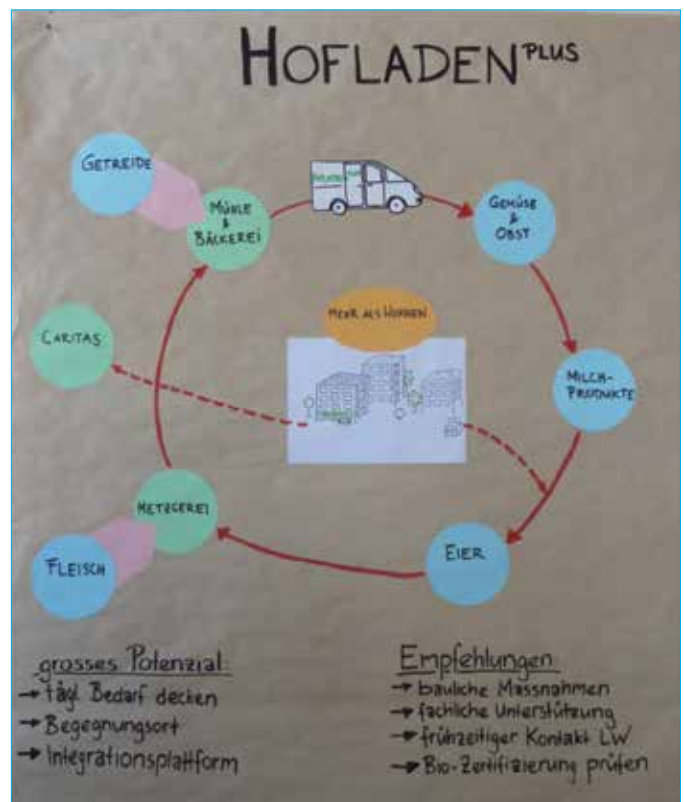 HOFLADEN PLUS
GETREIDE
MÜHLE
&
BÄCKEREI
GEMÜSE
&
OBST
CARITAS
MEHR ALS WOHNEN
MILCH-
PRODUKTE
METZGEREI
EIER
FLEISCH
grosses Potenzial:
→ tägl. Bedarf decken
→ Begegnungsort
→ Integrationsplattform
Empfehlungen:
→ bauliche Massnahmen
→ fachliche Unterstützung
→ frühzeitiger Kontakt LW
→ Bio-Zertifizierung prüfen